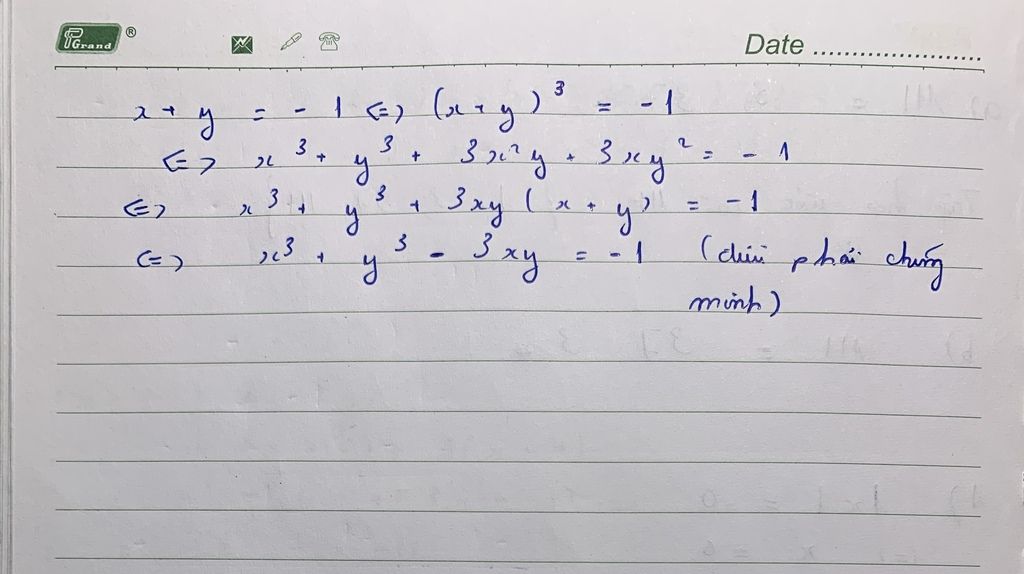 PGrand ®
Date ........................
x + y = - 1 <=> (x + y)³ = - 1
<=> x³ + y³ + 3x²y + 3xy² = - 1
<=> x³ + y³ + 3xy ( x + y) = - 1
<=> x³ + y³ - 3xy = - 1 (điều phải chứng
minh)